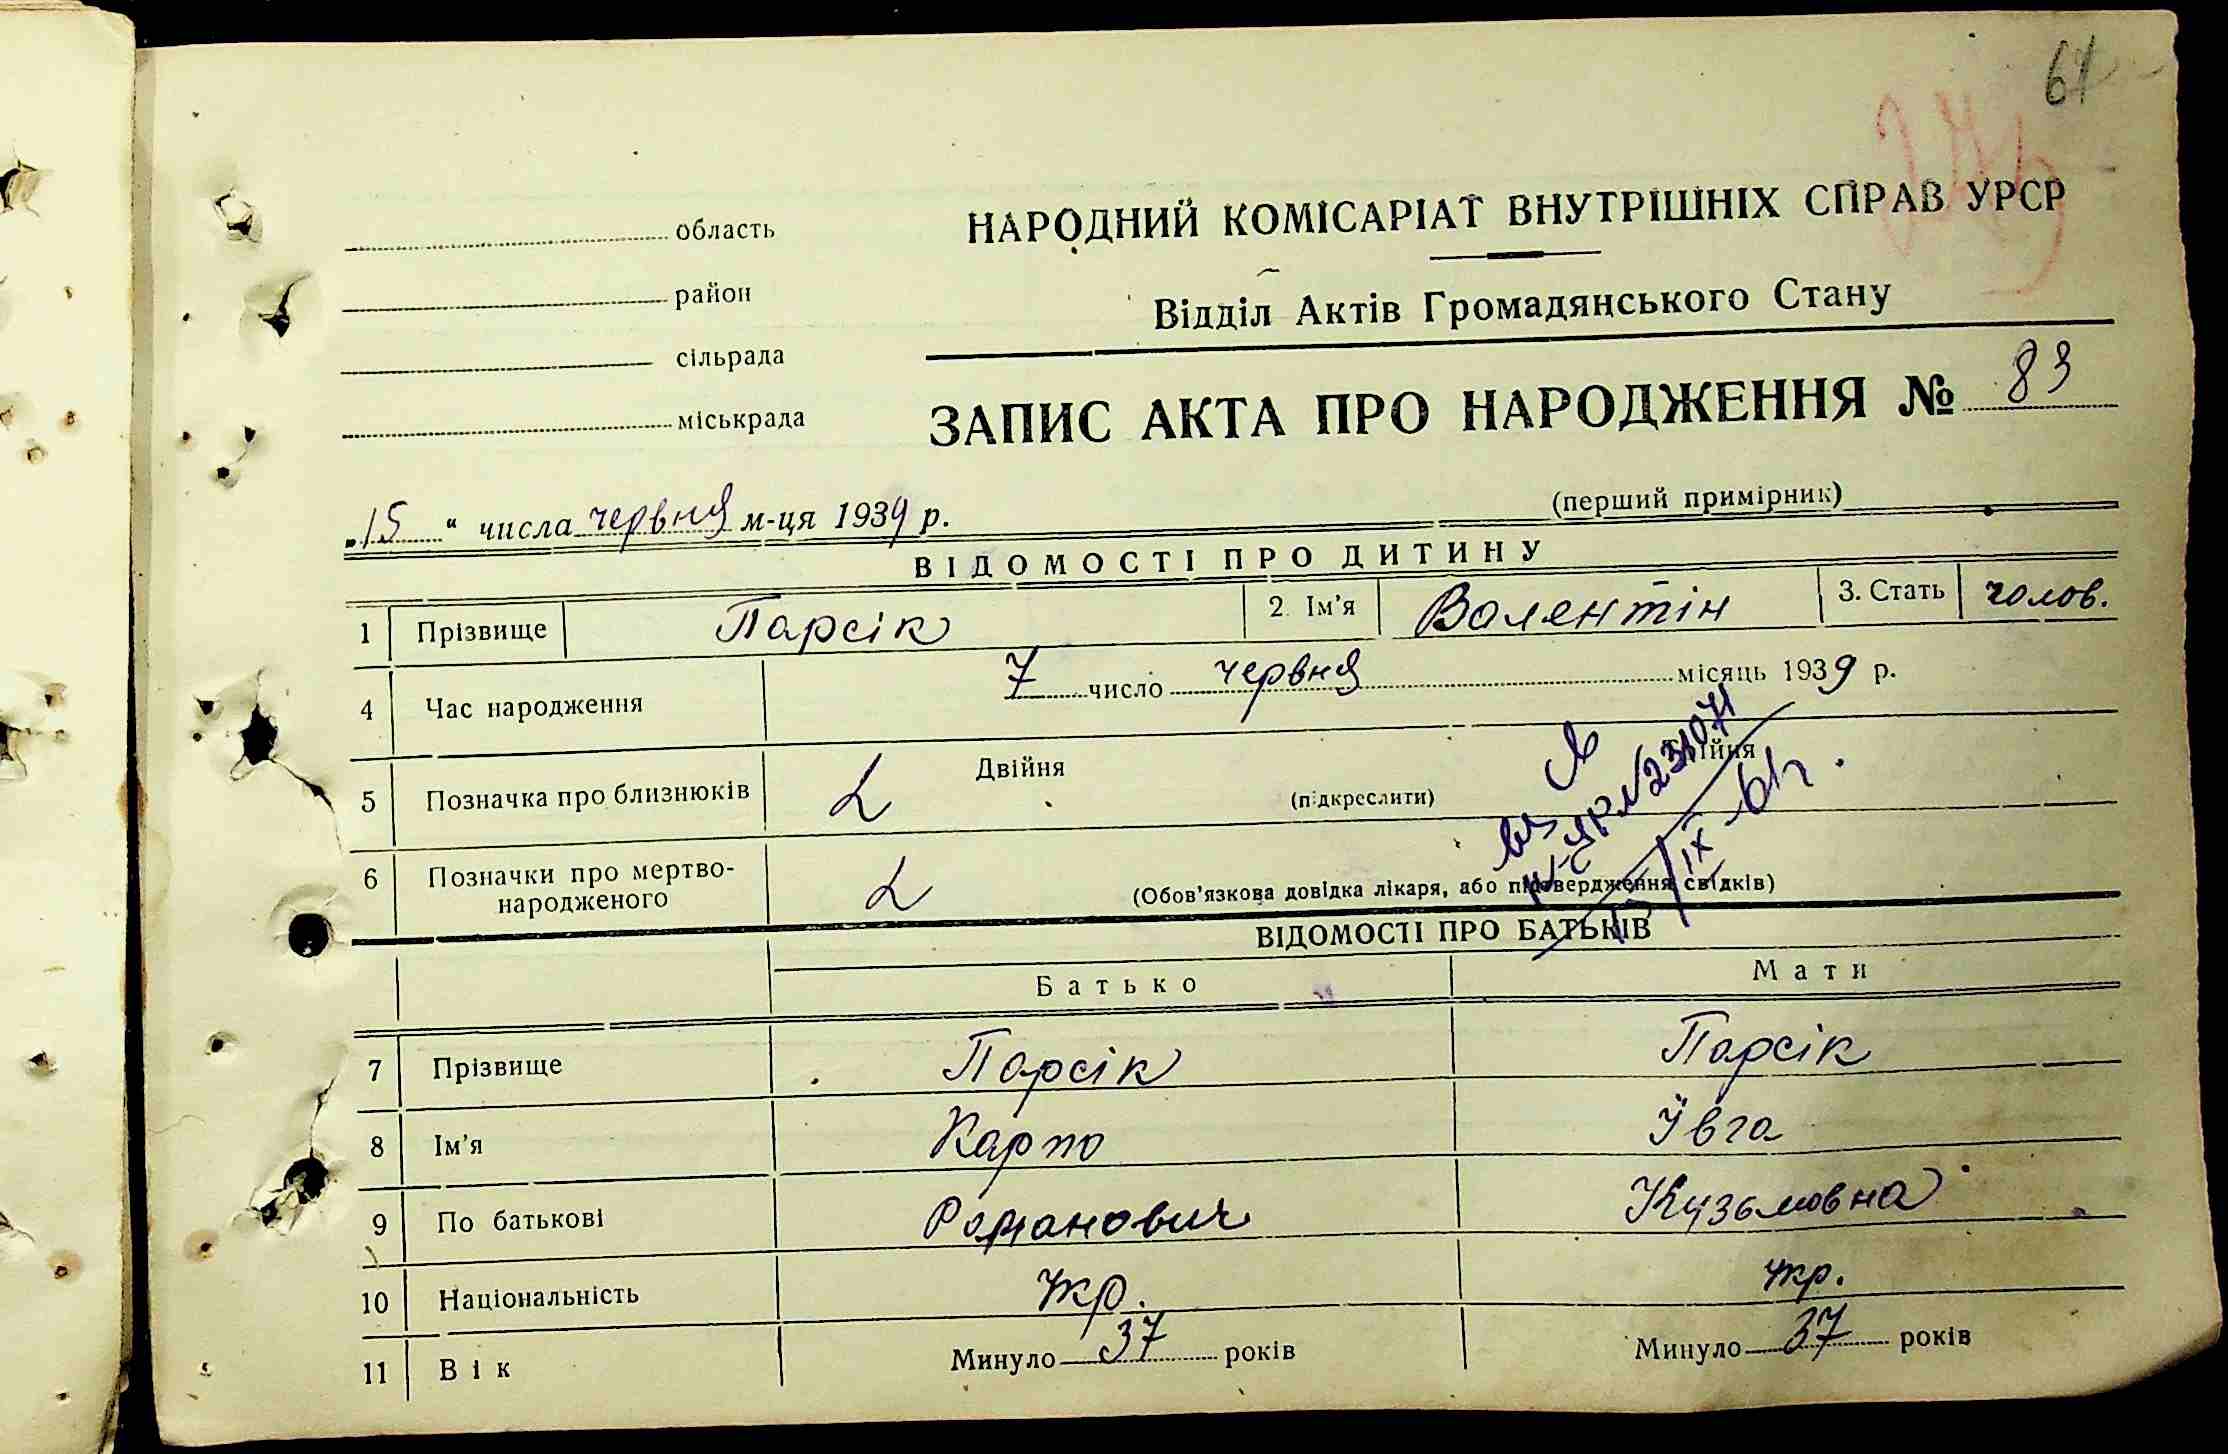 61
область
НАРОДНИЙ КОМІСАРІАТ ВНУТРІШНІХ СПРАВ УРСР
район
Відділ Актів Громадянського Стану
сільрада
міськрада
ЗАПИС АКТА ПРО НАРОДЖЕННЯ № 83
(перший примірник)
„15" числа червня м-ця 1939 р.
ВІДОМОСТІ ПРО ДИТИНУ
1 Прізвище Парсік 2. Ім'я Валентін 3. Стать чолов.
4 Час народження 7 число червня місяць 1939 р.
5 Позначка про близнюків Двійня Трійня
(підкреслити)
6 Позначки про мертво-
народженого (Обов'язкова довідка лікаря, або підтвердження свідків)
ВІДОМОСТІ ПРО БАТЬКІВ
Батько Мати
7 Прізвище Парсік Парсік
8 Ім'я Карпо Ївга
9 По батькові Романович Кузьмовна
10 Національність Укр. Укр.
11 Вік Минуло 37 років Минуло 37 років